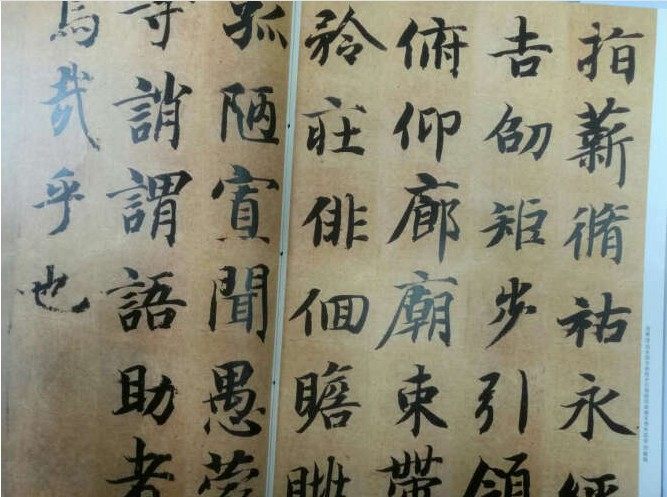 指薪脩祜永綏
吉劭矩步引領
俯仰廊廟束帶
矜莊俳佪瞻眺
孤陋寡聞愚蒙
等誚謂語助者
焉哉乎也